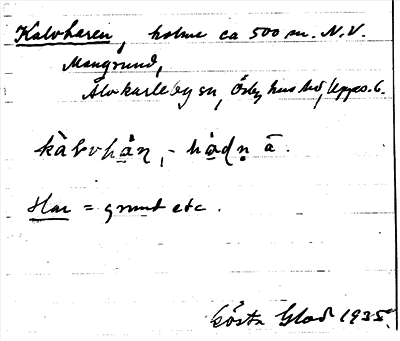 Kalvharen, holme ca 500 m. N.V.
Mångrund,
Älvkarleby sn, Örbyhus hd, Upps. l.
kàlvhạ̊n, - hạ̊dṇ ā.
Har = grund etc.
Gösta Glad 1935.